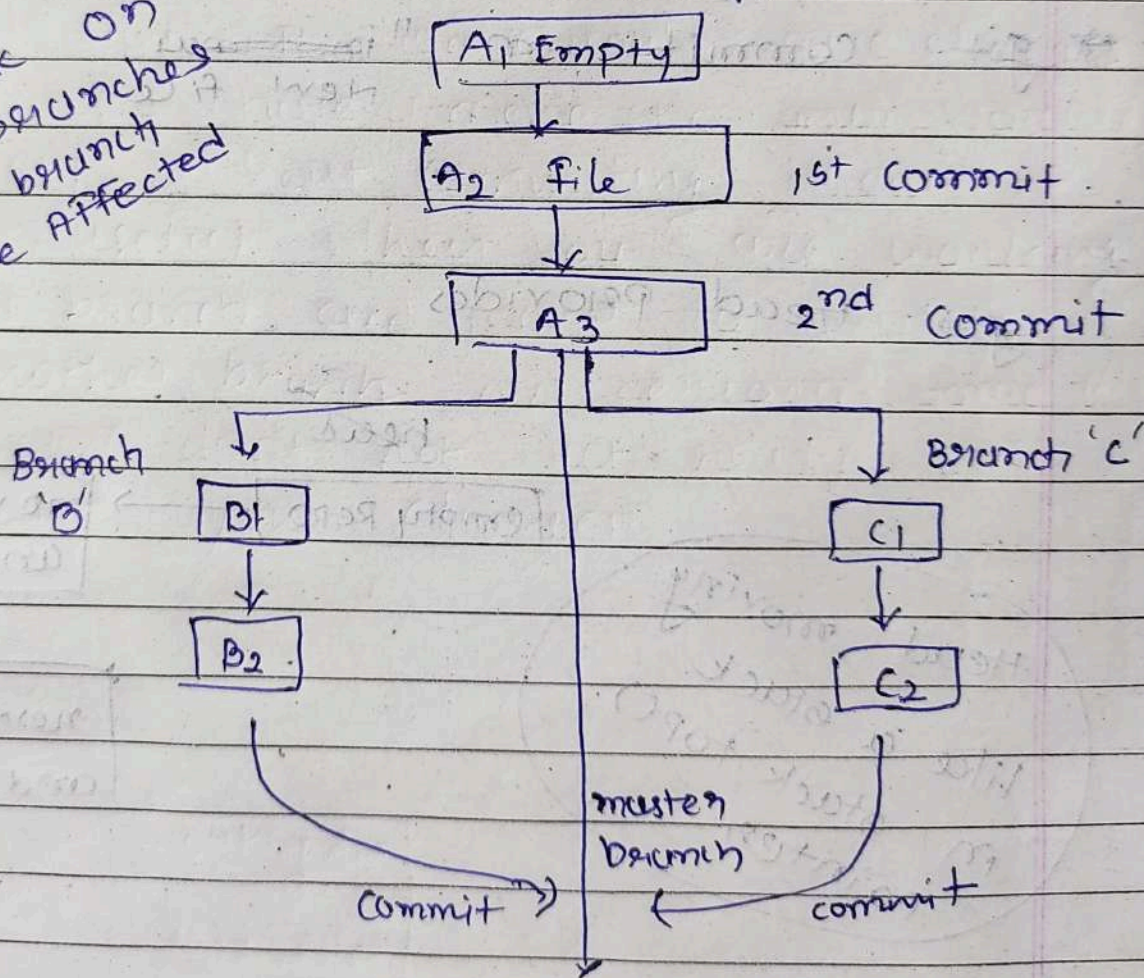 on
branches
branch
Affected
A1 Empty
A2 file 1st Commit.
A3 2nd Commit
Branch 'B'
Branch 'C'
B1
C1
B2
C2
master
branch
Commit
commit